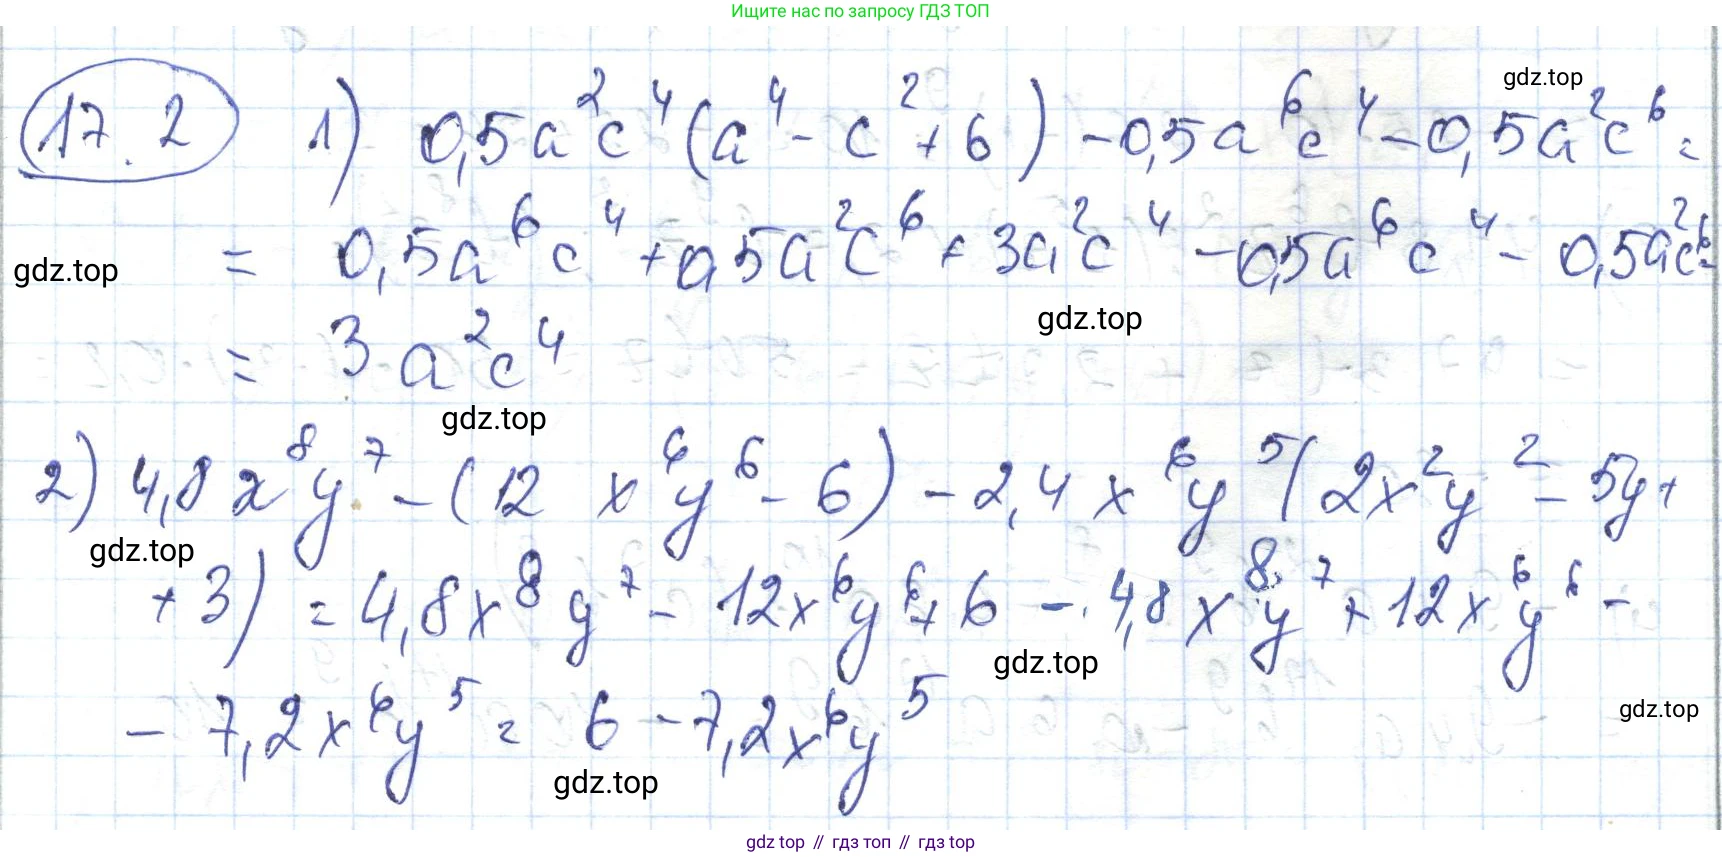 Ищите нас по запросу ГДЗ ТОП
17.2 1) 0,5a²c⁴(a⁴ - c² + 6) - 0,5a⁶c⁴ - 0,5a²c⁶ =
gdz.top
= 0,5a⁶c⁴ + 0,5a²c⁶ + 3a²c⁴ - 0,5a⁶c⁴ - 0,5a²c⁶ =
gdz.top
gdz.top
= 3a²c⁴
gdz.top
2) 4,8x⁸y⁷ - (12x⁶y⁶ - 6) - 2,4x⁶y⁵(2x²y² - 5y +
gdz.top
+ 3) = 4,8x⁸y⁷ - 12x⁶y⁶ + 6 - 4,8x⁸y⁷ + 12x⁶y⁶ -
gdz.top
- 7,2x⁶y⁵ = 6 - 7,2x⁶y⁵
gdz.top
gdz.top
gdz.top // гдз топ // гдз top